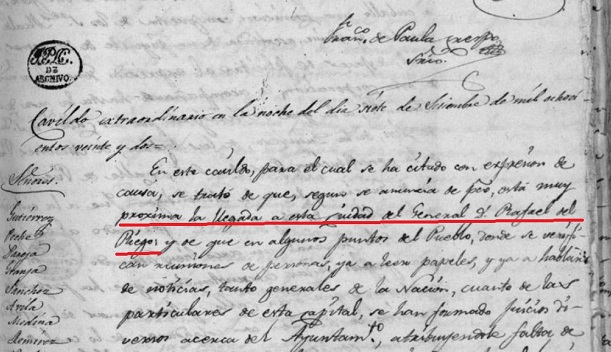 Fran.co de Paula Crespo
Srio.
DE
ARCHIVO
Cavildo extraordinario en la noche del dia siete de Setiembre de mil ochoci
entos veinte y dos
Señores
Gutierrez
Pareja
Sanchez
Avila
Medina
En este cavildo, para el cual se ha citado con expresion de
causa, se trató de que, segun se anuncia de está muy
proxima la llegada a esta Ciudad del General D. Rafael del
Riego, y de que en algunos puntos del Pueblo, donde se verifi
can reuniones de personas, ya a leer papeles, y ya a hablar
de noticias, tanto generales de la Nacion, cuanto de las
particulares de esta capital, se han formado juicios di
versos acerca del Ayuntam.to, atribuyendole falta de